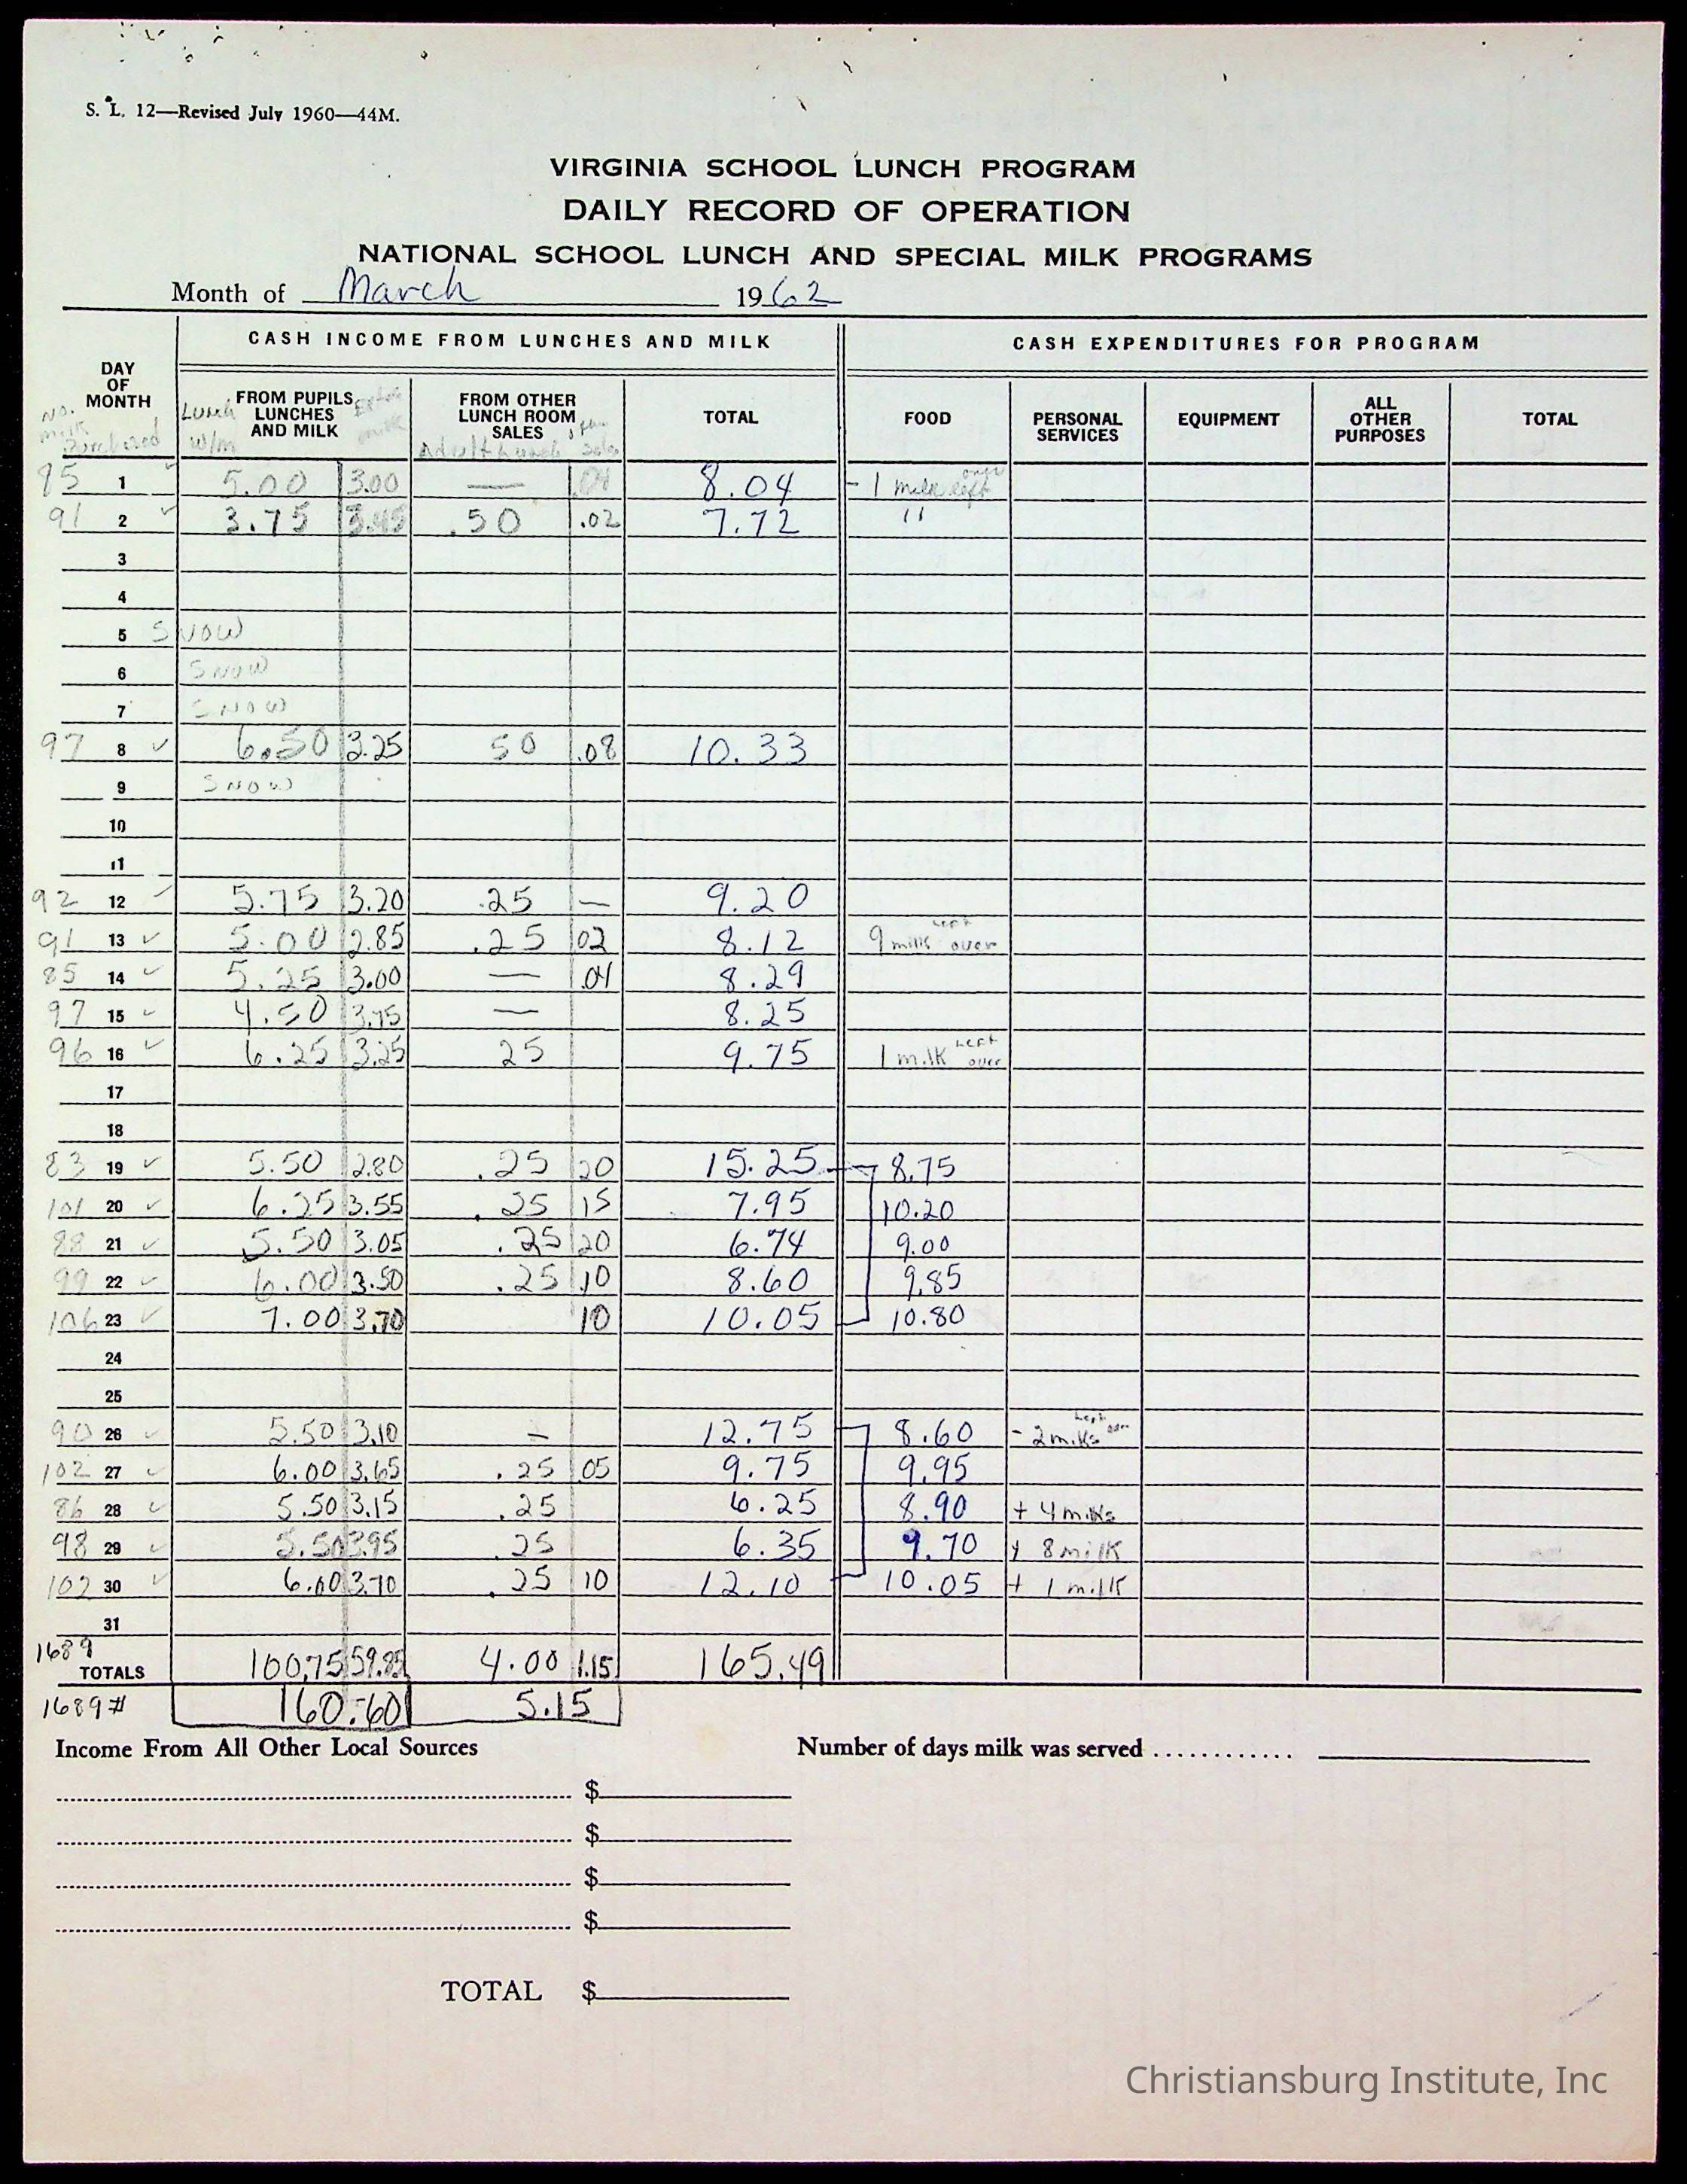 S. L. 12—Revised July 1960—44M.
VIRGINIA SCHOOL LUNCH PROGRAM
DAILY RECORD OF OPERATION
NATIONAL SCHOOL LUNCH AND SPECIAL MILK PROGRAMS
Month of March 1962
CASH INCOME FROM LUNCHES AND MILK CASH EXPENDITURES FOR PROGRAM
DAY OF MONTH FROM PUPILS, LUNCHES AND MILK FROM OTHER LUNCH ROOM SALES TOTAL FOOD PERSONAL SERVICES EQUIPMENT ALL OTHER PURPOSES TOTAL
No. milk Purchased Lunch w/m Extra milk Adult Lunch
85 1 5.00 3.00 — .04 8.04 - 1 milk left over
91 2 3.75 3.45 .50 .02 7.72 "
3
4
5 SNOW
6 SNOW
7 SNOW
97 8 ✓ 6.50 3.25 50 .08 10.33
9 SNOW
10
11
92 12 ✓ 5.75 3.20 .25 — 9.20
91 13 ✓ 5.00 2.85 .25 02 8.12 9 milk left over
85 14 ✓ 5.25 3.00 — .04 8.29
97 15 ✓ 4.50 3.75 — 8.25
96 16 ✓ 6.25 3.25 25 9.75 1 milk Left over
17
18
83 19 ✓ 5.50 2.80 .25 20 15.25 8.75
101 20 ✓ 6.25 3.55 .25 15 7.95 10.20
88 21 ✓ 5.50 3.05 .25 20 6.74 9.00
99 22 ✓ 6.00 3.50 .25 10 8.60 9.85
106 23 ✓ 7.00 3.70 10 10.05 10.80
24
25
90 26 ✓ 5.50 3.10 — 12.75 8.60 - 2 milks left over
102 27 ✓ 6.00 3.65 .25 05 9.75 9.95
86 28 ✓ 5.50 3.15 .25 6.25 8.90 + 4 milks
98 29 ✓ 5.50 3.95 .25 6.35 9.70 + 8 milk
102 30 ✓ 6.00 3.70 .25 10 12.10 10.05 + 1 milk
31
1689
TOTALS 100.75 59.85 4.00 1.15 165.49
1689 # 160.60 5.15
Income From All Other Local Sources Number of days milk was served ............
$
$
$
$
TOTAL $
Christiansburg Institute, Inc